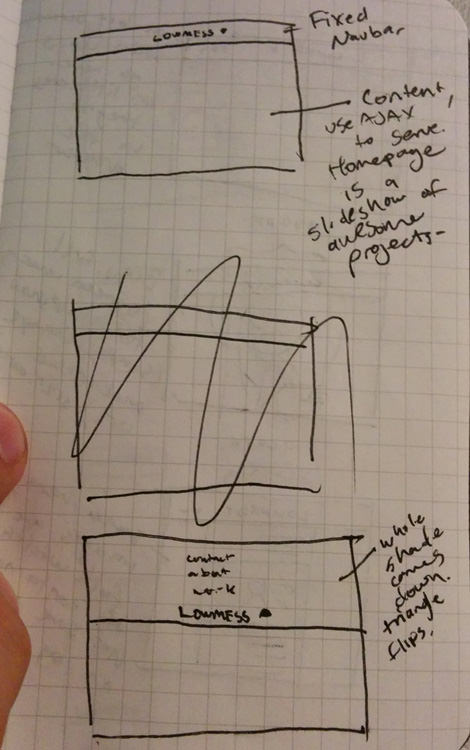 LOWMESS
Fixed
Navbar
Content,
use AJAX
to serve.
Homepage
is a
slideshow of
awesome
projects-
contact
about
work
LOWMESS
whole
shade
comes
down.
triangle
flips.